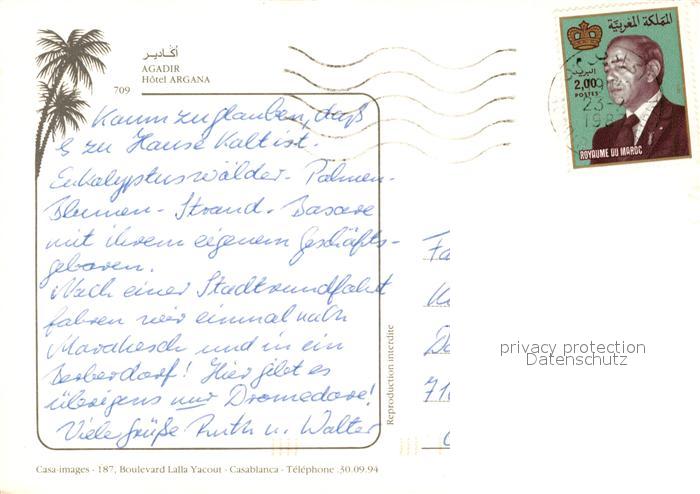 أكادير
AGADIR
Hôtel ARGANA
709
المملكة المغربية
البريد
2,00
POSTES
ROYAUME DU MAROC
23-
198
Kaum zu glauben, daß
es zu Hause kalt ist.
Eukalyptuswälder - Palmen -
Blumen - Strand - Basare
mit ihrem eigenem Geschäfts-
gebaren.
Nach einer Stadtrundfahrt
fahren wir einmal nach
Marakesch und in ein
Berberdorf! Hier gibt es
übrigens nur Dromedare!
Viele Grüße Ruth u. Walter
Reproduction interdite
Fa
710
privacy protection
Datenschutz
Casa-images - 187, Boulevard Lalla Yacout - Casablanca - Téléphone :30.09.94